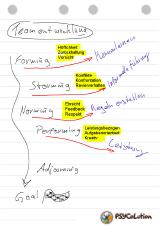 Teamentwicklung
Höflichkeit
Zurückhaltung
Vorsicht
Forming
Kennenlernen
Konflikte
Konfrontation
Revierverhalten
Storming
Informelle Führung
Einsicht
Feedback
Respekt
Norming
Regeln erstellen
Leistungsbezogen
Aufgabenorientiert
Kreativ
Performing
Leistung
Adjourning
Goal
PSYCoLution